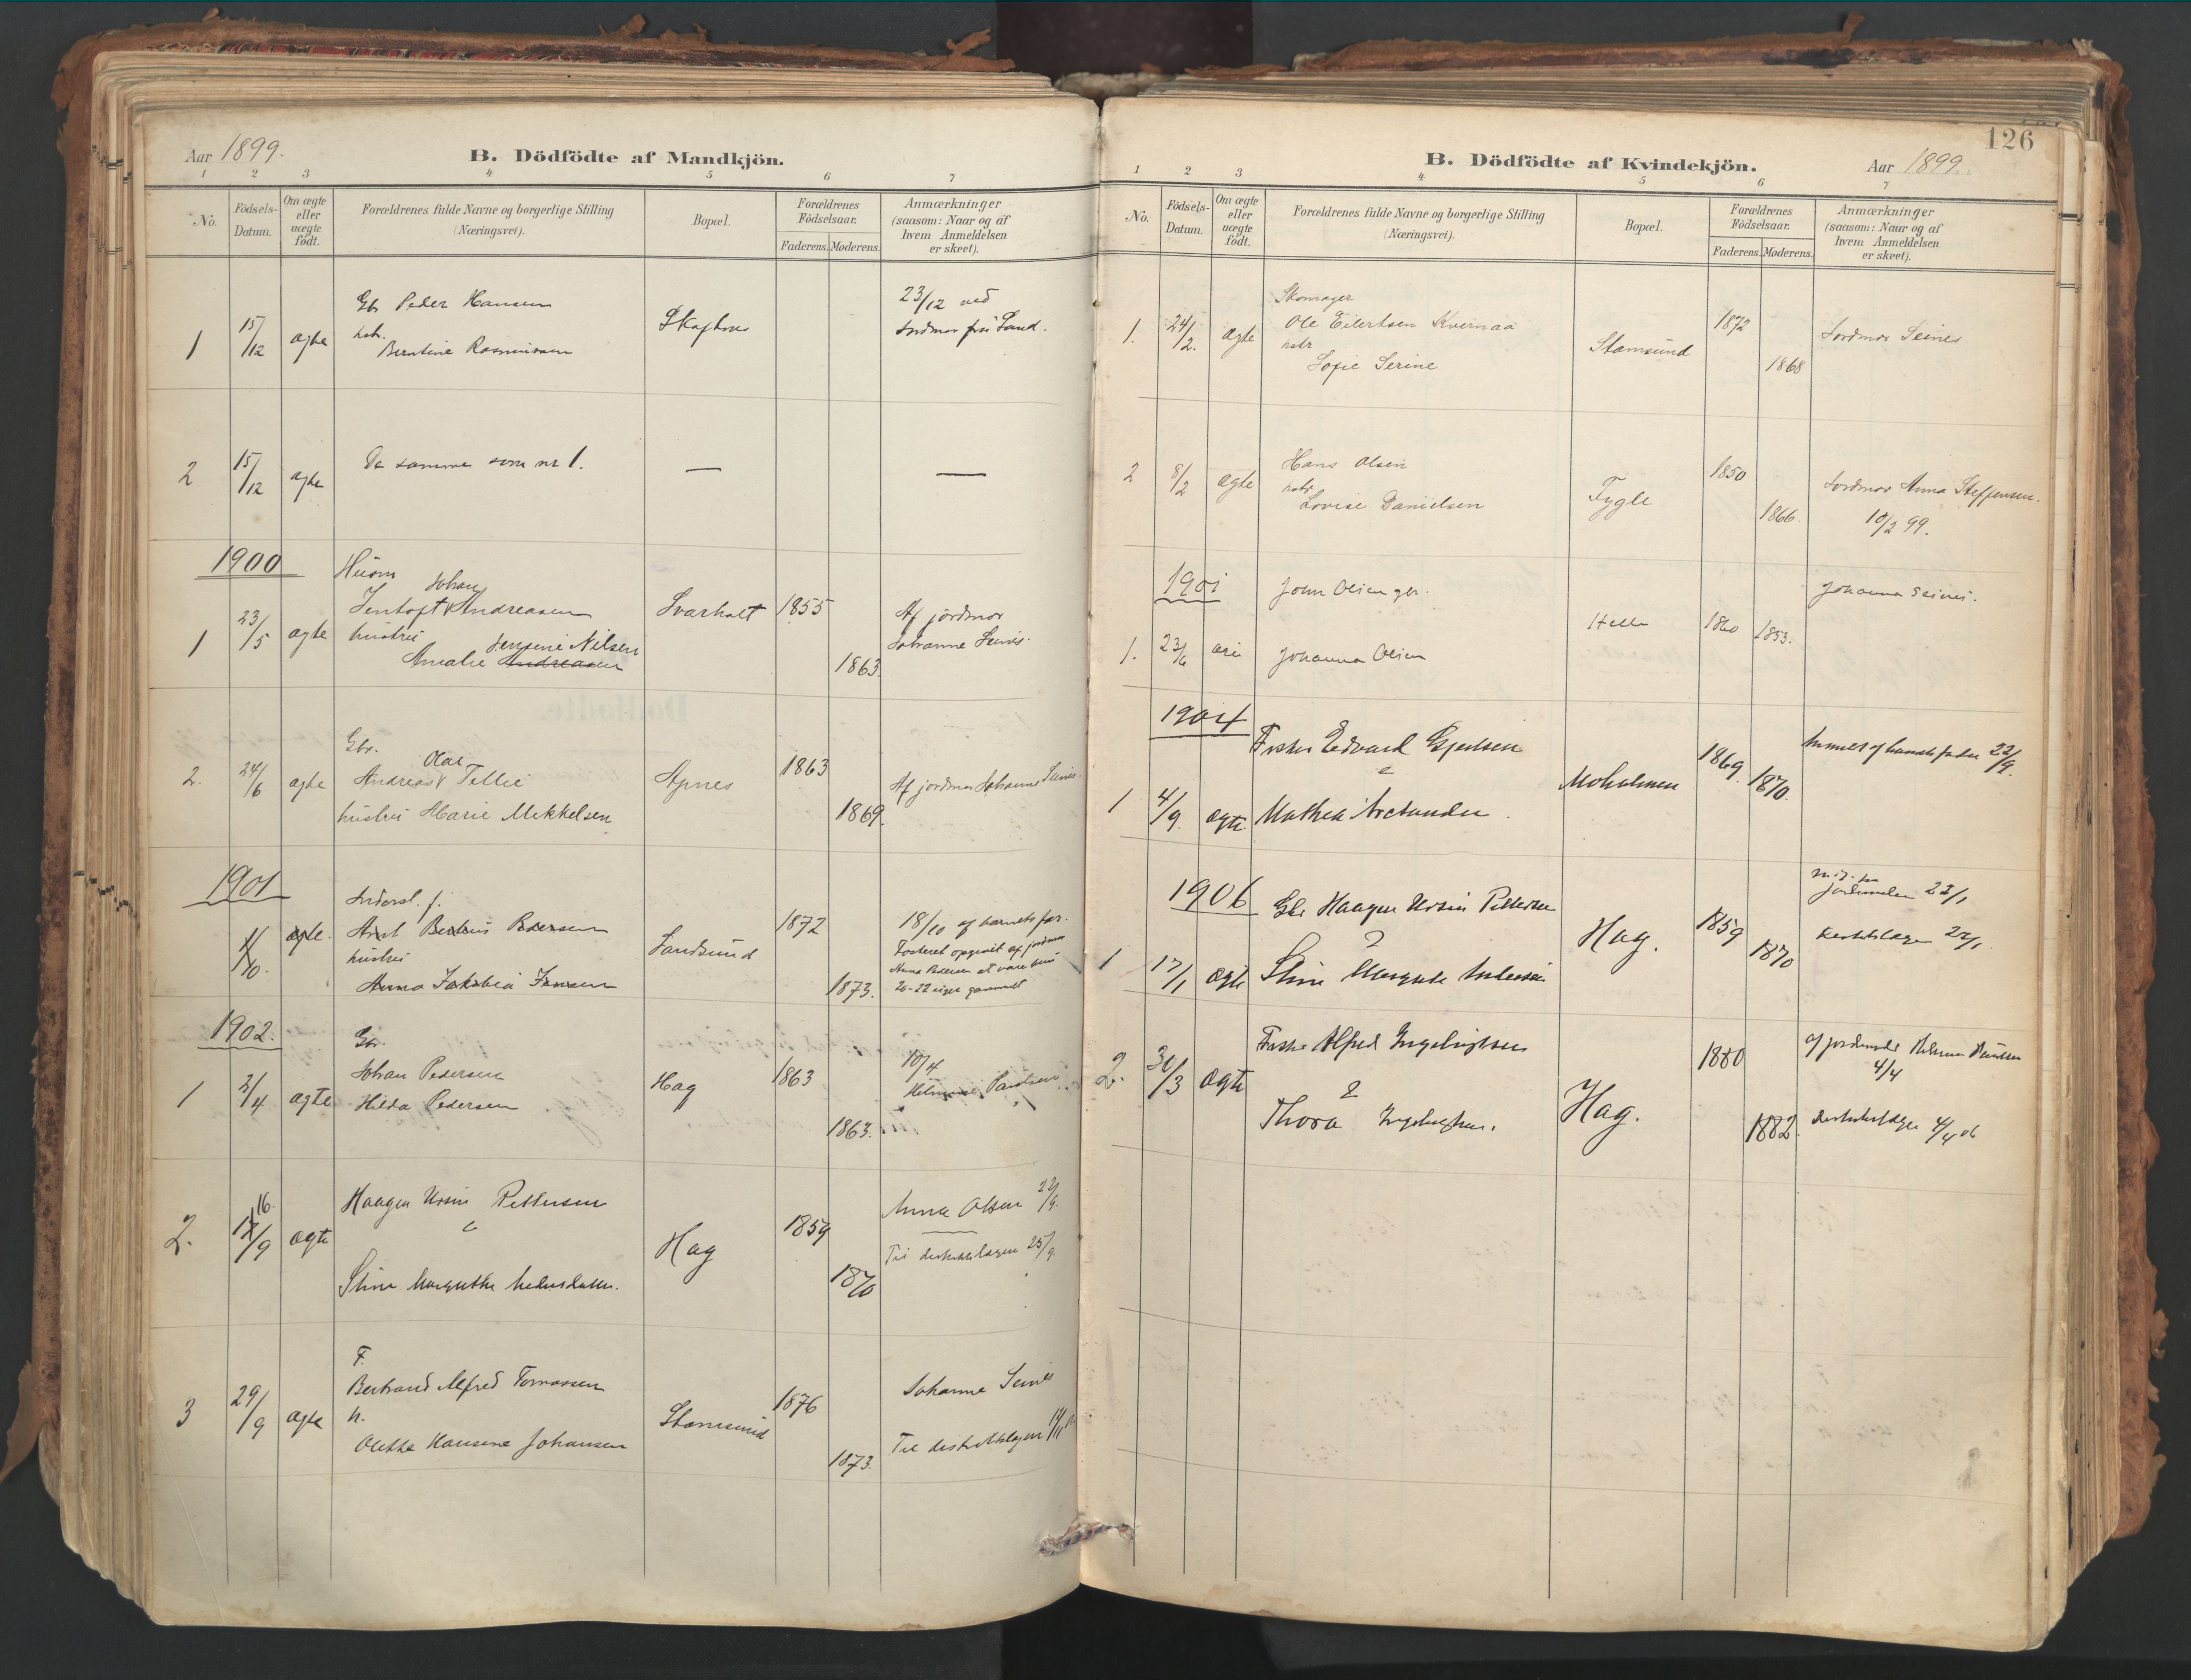 Aar 1899.
B. Dödfödte af Mandkjön.
1 2 3 4 5 6 7
No.
Födsels-Datum.
Om ægte eller uægte födt.
Forældrenes fulde Navne og borgerlige Stilling (Næringsvei).
Bopæl.
Forældrenes Födselsaar.
Faderens. Moderens.
Anmærkninger (saasom: Naar og af hvem Anmeldelsen er skeet).
Gbr Peder Hansen 23/12 ved
1 15/12 ægte Skaftnes Jordmor fru Sund.
Berntine Rasmussen
2 15/12 ægte De samme som nr 1. — —
1900
Huusm Johan
Jentoft Andreasen Svarholt 1855 Af jordmor
1 23/5 ægte hustru Jensine Nilsen Johanne Seines.
Amalie Andreasen 1863
Gbr. Olai
2. 24/6 ægte Andreas Tellie Apnes 1863 Af jordmor Johanne Seines.
hustru Marie Mikkelsen 1869.
1901
Inderst. f.
1/10. ægte. Arnt Bertius Pedersen Sandsund 1872 18/10 af barnets far.
hustru Fosteret opgivet af jordmor
Anna Pedersen at være kun
Anna Jakobia Jensen 1873. 20-22 uger gammelt
1902.
Gbr.
Johan Pedersen Hag 1863 10/4
1 2/4 ægte Hilda Pedersen 1863.
16.
2. 17/9 ægte Haagen Ursin Pettersen Hag 1859 Anna Olsen 22/9.
Til distriktslægen 25/9.
Stine Margrethe 1870
F.
3 29/9 ægte Bertrand Alfred Tomassen Stamsund 1876 Johanne Seines
h.
Olette Hansine Johansen 1873. Til distriktslægen
126
B. Dödfödte af Kvindekjön.
Aar 1899.
1 2 3 4 5 6 7
No.
Födsels-Datum.
Om ægte eller uægte födt.
Forældrenes fulde Navne og borgerlige Stilling (Næringsvei).
Bopæl.
Forældrenes Födselsaar.
Faderens. Moderens.
Anmærkninger (saasom: Naar og af hvem Anmeldelsen er skeet).
Skomager
1. 24/2. ægte Ole Eilertsen Kvernaa Stamsund 1872 Jordmor Seines
hstr
Sofie Serine 1868
2 8/2 ægte Hans Olsen Tygle 1850 Jordmor Anna Steffensen.
hstr
Lovise Danielsen 1866. 10/2 99.
1901
John Olsen gbr. Helle 1860 1853. Johanna Seines.
1. 23/6 Johanna Olsen
1904
Fisker Edvard Gjertsen Moholmen 1869. 1870. Anmeldt af barnets fader 22/9.
1 4/9. ægte Mathea Arctander
1906
Gbr Haagen Ursin Pettersen Hag. 1859 23/1
&
1 17/1 ægte Stine Margrete 1870 22/1.
2. 30/3 ægte Fisker Alfred Ingebrigtsen Hag. 1880 af jordmoder
& 4/4
Thora Ingebrigtsen. 1882. distriktslægen 4/4 06